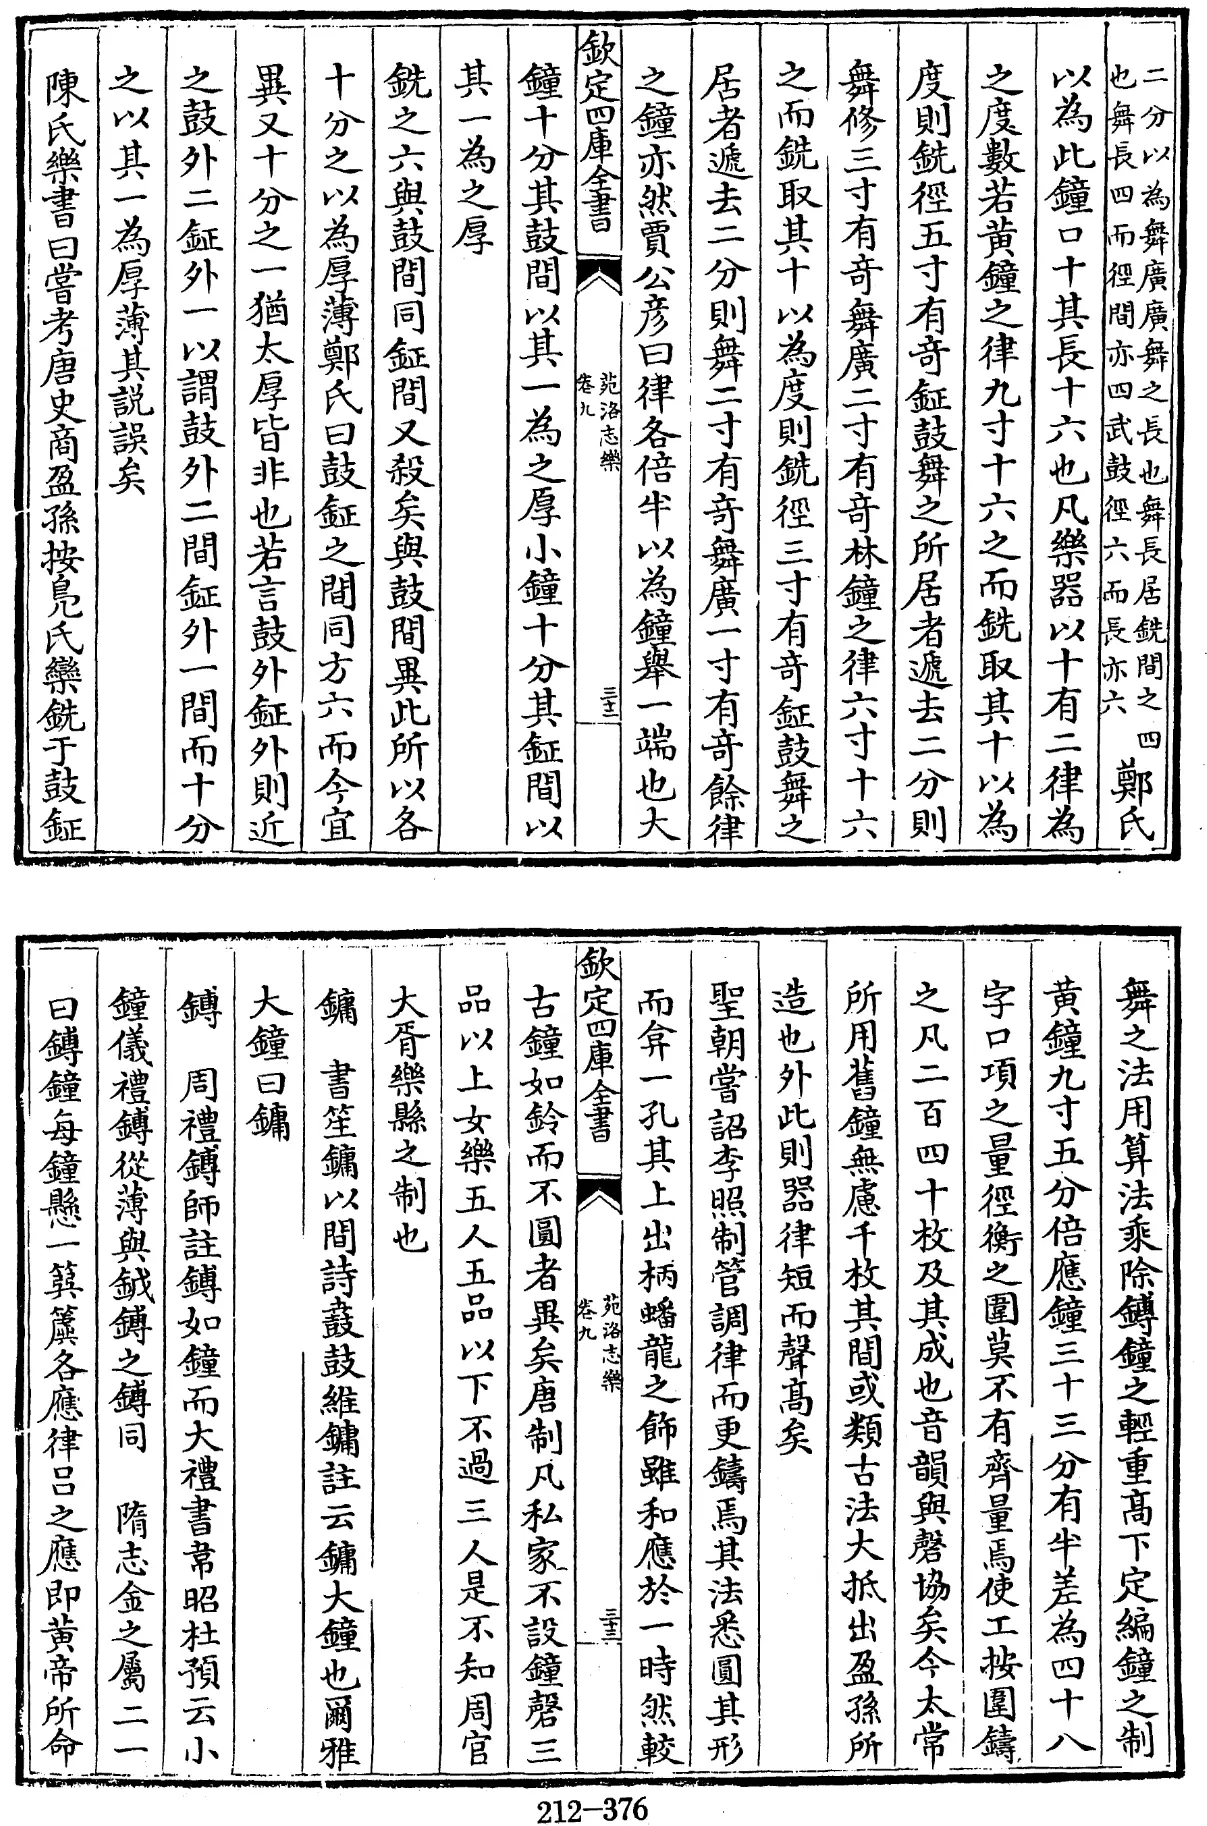 二分以為舞廣廣舞之長也舞長居銑間之四
也舞長四而徑間亦四武鼓徑六而長亦六
鄭氏
以為此鐘口十其長十六也凡樂器以十有二律為
之度數若黃鐘之律九寸十六之而銑取其十以為
度則銑徑五寸有竒鉦鼓舞之所居者遞去二分則
舞修三寸有竒舞廣二寸有竒林鐘之律六寸十六
之而銑取其十以為度則銑徑三寸有竒鉦鼓舞之
居者遞去二分則舞二寸有竒舞廣一寸有竒餘律
之鐘亦然賈公彦曰律各倍半以為鐘舉一端也大
欽定四庫全書
苑洛志樂
卷九
三十二
鐘十分其鼓間以其一為之厚小鐘十分其鉦間以
其一為之厚
銑之六與鼓間同鉦間又殺矣與鼓間異此所以各
十分之以為厚薄鄭氏曰鼓鉦之間同方六而今宜
異又十分之一猶太厚皆非也若言鼓外鉦外則近
之鼓外二鉦外一以謂鼓外二間鉦外一間而十分
之以其一為厚薄其説誤矣
陳氏樂書曰嘗考唐史商盈孫按鳧氏欒銑于鼓鉦
舞之法用算法乘除鎛鐘之輕重髙下定編鐘之制
黃鐘九寸五分倍應鐘三十三分有半差為四十八
字口項之量徑衡之圍莫不有齊量焉使工按圍鑄
之凡二百四十枚及其成也音韻與磬協矣今太常
所用舊鐘無慮千枚其間或類古法大抵出盈孫所
造也外此則器律短而聲髙矣
聖朝嘗詔李照制管調律而更鑄焉其法悉圓其形
而弇一孔其上出柄蟠龍之飾雖和應於一時然較
欽定四庫全書
苑洛志樂
卷九
三十三
古鐘如鈴而不圓者異矣唐制凡私家不設鐘磬三
品以上女樂五人五品以下不過三人是不知周官
大胥樂縣之制也
鏞　書笙鏞以間詩鼖鼓維鏞註云鏞大鐘也爾雅
大鐘曰鏞
鎛　周禮鎛師註鎛如鐘而大禮書韋昭杜預云小
鐘儀禮鎛從薄與錢鎛之鎛同　隋志金之屬二一
曰鎛鐘每鐘懸一簨簴各應律吕之應即黃帝所命
212-376